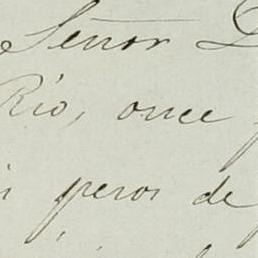 Señor D
Rio, once
pesos de